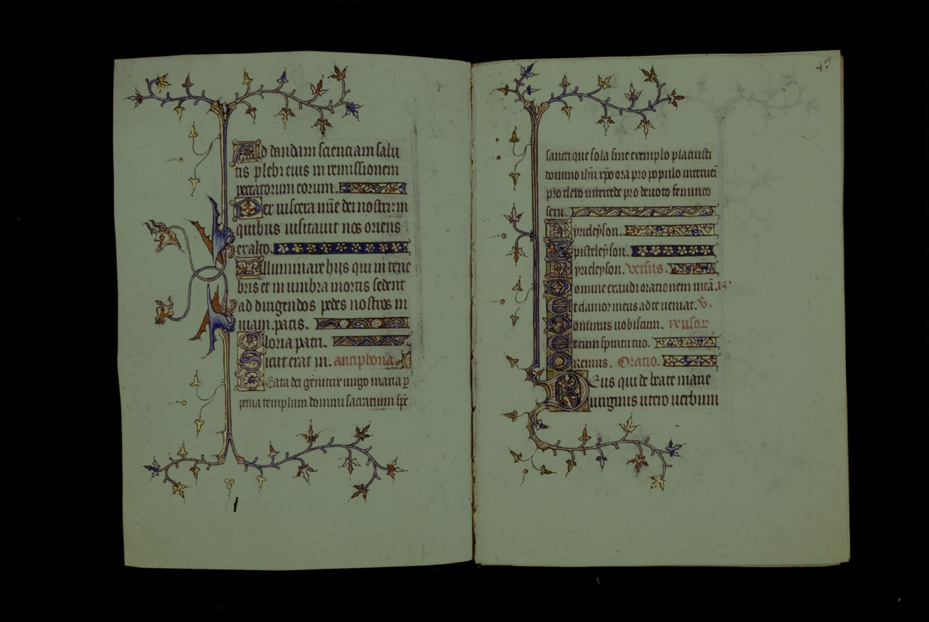 Ad dandam scienciam salu
tis plebi eius in remissionem
peccatorum eorum.
Per viscera mīe dei nostri in
quibus visitavit nos oriens
ex alto.
Illuminare hijs qui in tene
bris et in umbra mortis sedent
ad dirigendos pedes nostros in
viam pacis.
Gloria patri.
Sicut erat in. antiphona
Beata dei genitrix virgo maria p
petua templum domini sacrarium spē
sancti que sola sine exemplo placuisti
domino ihū xp̄o ora pro populo interveī
pro clero intercede pro devoto femineo
sexu.
Kyrieleyson.
Xpisteleyson.
Kyrieleyson. Versus.
Domine exaudi orationem meā. R
Et clamor meus ad te veniat. V.
Dominus vobiscum. Responsor
Et cum spiritu tuo.
Oremus. Oratio.
Deus qui de beate marie
virginis utero verbum